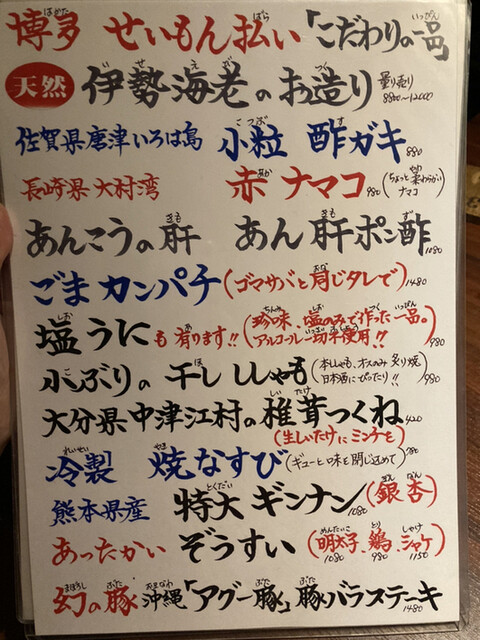 博多 せいもん払い「こだわりの一品」
天然 伊勢海老のお造り 量り売り 8800〜12000
佐賀県唐津いろは島 小粒 酢ガキ 880
長崎県大村湾 赤ナマコ 980 (ちょっと柔わらかいナマコ)
あんこうの肝 あん肝ポン酢 1080
ごまカンパチ(ゴマサバと同じタレで) 1480
塩うにも有ります!! (珍味、塩のみで作った一品。アルコール一切不使用!!) 980
小ぶりの干ししゃも (本ししゃも、オスのみ 炙り焼 日本酒にぴったり!!) 980
大分県中津江村の椎茸つくね 420
(生しいたけにミンチを)
冷製 焼なすび (ギューと味を閉じ込めて) 780
熊本県産 特大ギンナン(銀杏) 1080
あったかいぞうすい (明太子 1080、鶏 980、シャケ 1150)
幻の豚 沖縄「アグー豚」豚バラステーキ 1480